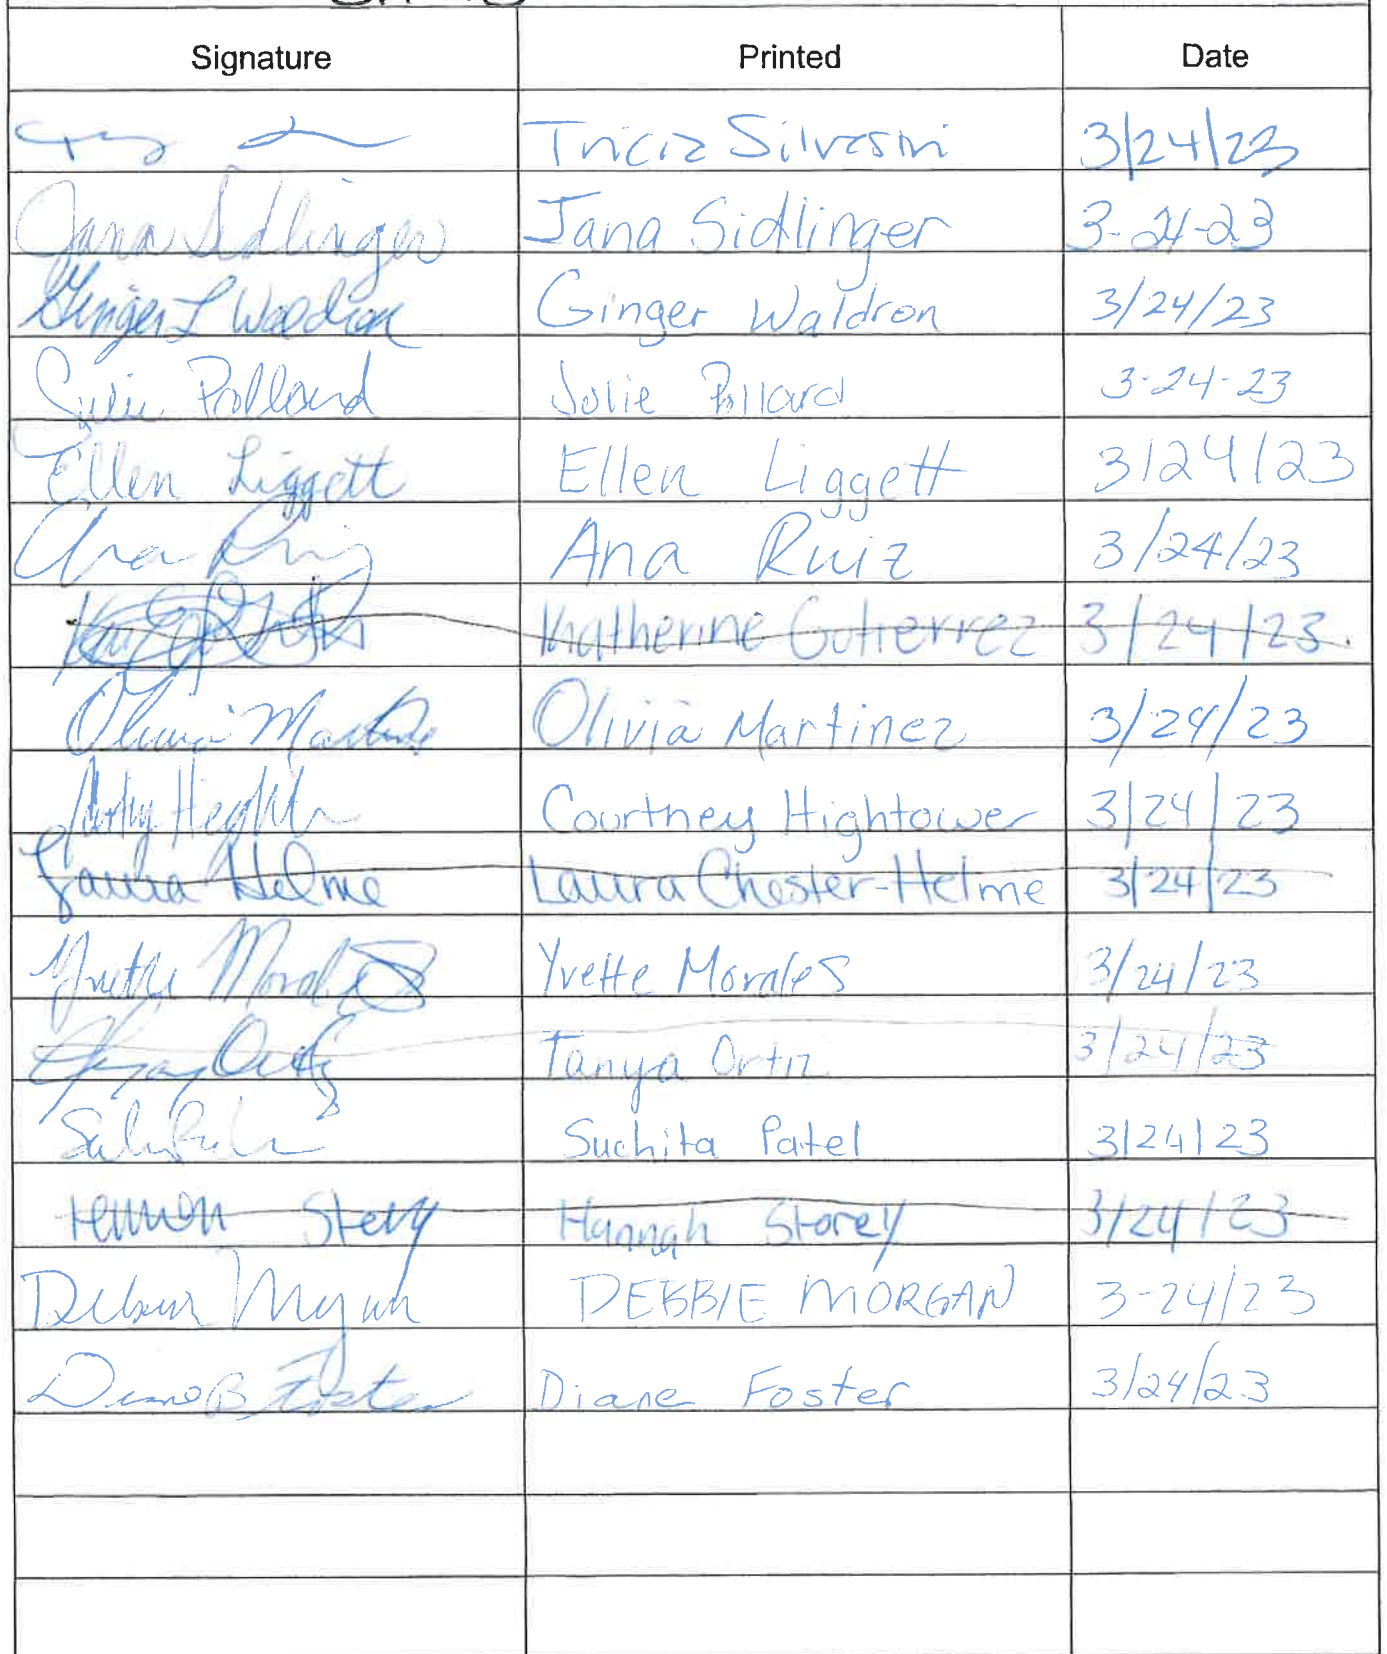 Signature Printed Date
Tricia Silvestri 3/24/23
Jana Sidlinger Jana Sidlinger 3-24-23
Ginger L Waldron Ginger Waldron 3/24/23
Julie Pollard Julie Pollard 3-24-23
Ellen Liggett Ellen Liggett 3/24/23
Ana Ruiz Ana Ruiz 3/24/23
Khatherine Gutierrez 3/24/23
Olivia Martinez Olivia Martinez 3/24/23
Courtney Hightower 3/24/23
Laura Helme Laura Chester-Helme 3/24/23
Yvette Morales Yvette Morales 3/24/23
Tanya Ortiz Tanya Ortiz 3/24/23
Suchita Patel 3/24/23
Hannah Storey Hannah Storey 3/24/23
Debbie Morgan DEBBIE MORGAN 3-24/23
Diane B Foster Diane Foster 3/24/23